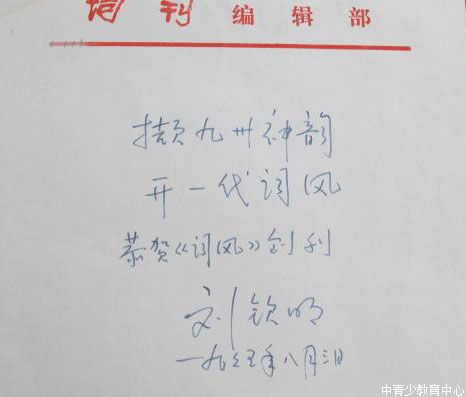 词刊 编辑部
撷九州神韵
开一代词风
恭贺《词风》创刊
刘钦明
一九九五年八月三日
中青少教育中心